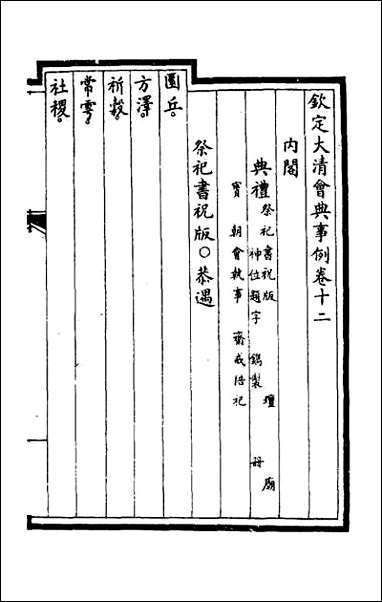 欽定大清會典事例卷十二
內閣
典禮 祭祀書祝版 壇廟
神位題字 鐫製 冊
寶 朝會執事 齋戒陪祀
祭祀書祝版○恭遇
圜丘。
方澤。
祈穀。
常雩。
社稷。